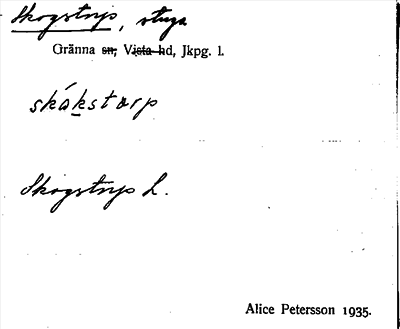 Skogstorp, stuga
Gränna sn, Vista hd, Jkpg. l.
skákstorp
Skogstorp L.
Alice Petersson 1935.